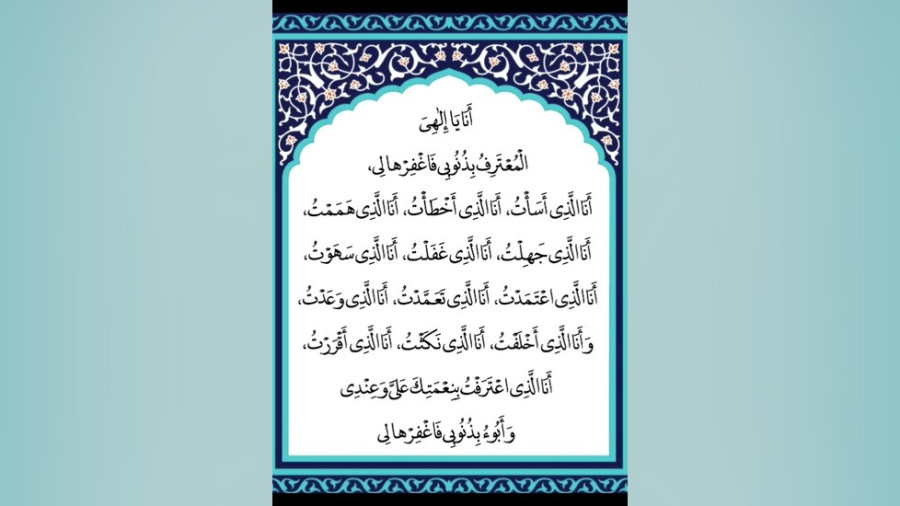 أَنَا يَا إِلٰهِىَ
الْمُعْتَرِفُ بِذُنُوبِى فَاغْفِرْها لِى،
أَنَا الَّذِى أَسَأْتُ، أَنَا الَّذِى أَخْطَأْتُ، أَنَا الَّذِى هَمَمْتُ،
أَنَا الَّذِى جَهِلْتُ، أَنَا الَّذِى غَفَلْتُ، أَنَا الَّذِى سَهَوْتُ،
أَنَا الَّذِى اعْتَمَدْتُ، أَنَا الَّذِى تَعَمَّدْتُ، أَنَا الَّذِى وَعَدْتُ،
وَأَنَا الَّذِى أَخْلَفْتُ، أَنَا الَّذِى نَكَثْتُ، أَنَا الَّذِى أَقْرَرْتُ،
أَنَا الَّذِى اعْتَرَفْتُ بِنِعْمَتِكَ عَلَىَّ وَعِنْدِى
وَأَبُوءُ بِذُنُوبِى فَاغْفِرْها لِى